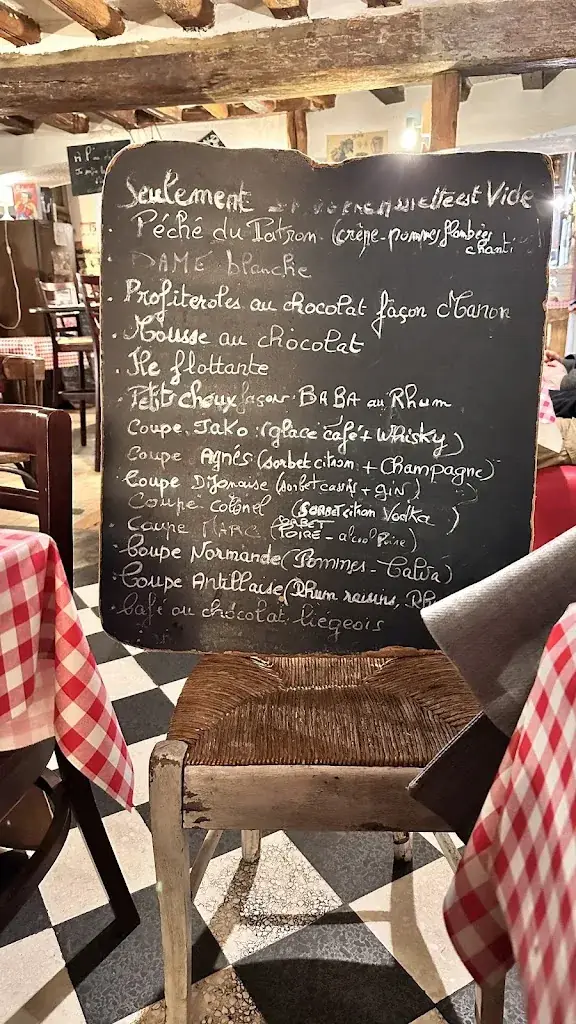 Seulement est Vide
Péché du Patron (crêpe-pommes flambées
chanti
DAME blanche
Profiteroles au chocolat façon Manon
Mousse au chocolat
Île flottante
Petit choux façon BABA au Rhum
Coupe JAKO (glace café + Whisky)
Coupe Agnès (sorbet citron + Champagne)
Coupe Dijonaise (sorbet cassis + GIN)
Coupe colonel (SORBET citron Vodka)
Coupe MARC (SORBET
POIRE - alcool Poire)
Coupe Normande (Pommes - Calva)
Coupe Antillaise (Rhum raisins, Rh
Café ou chocolat liégeois